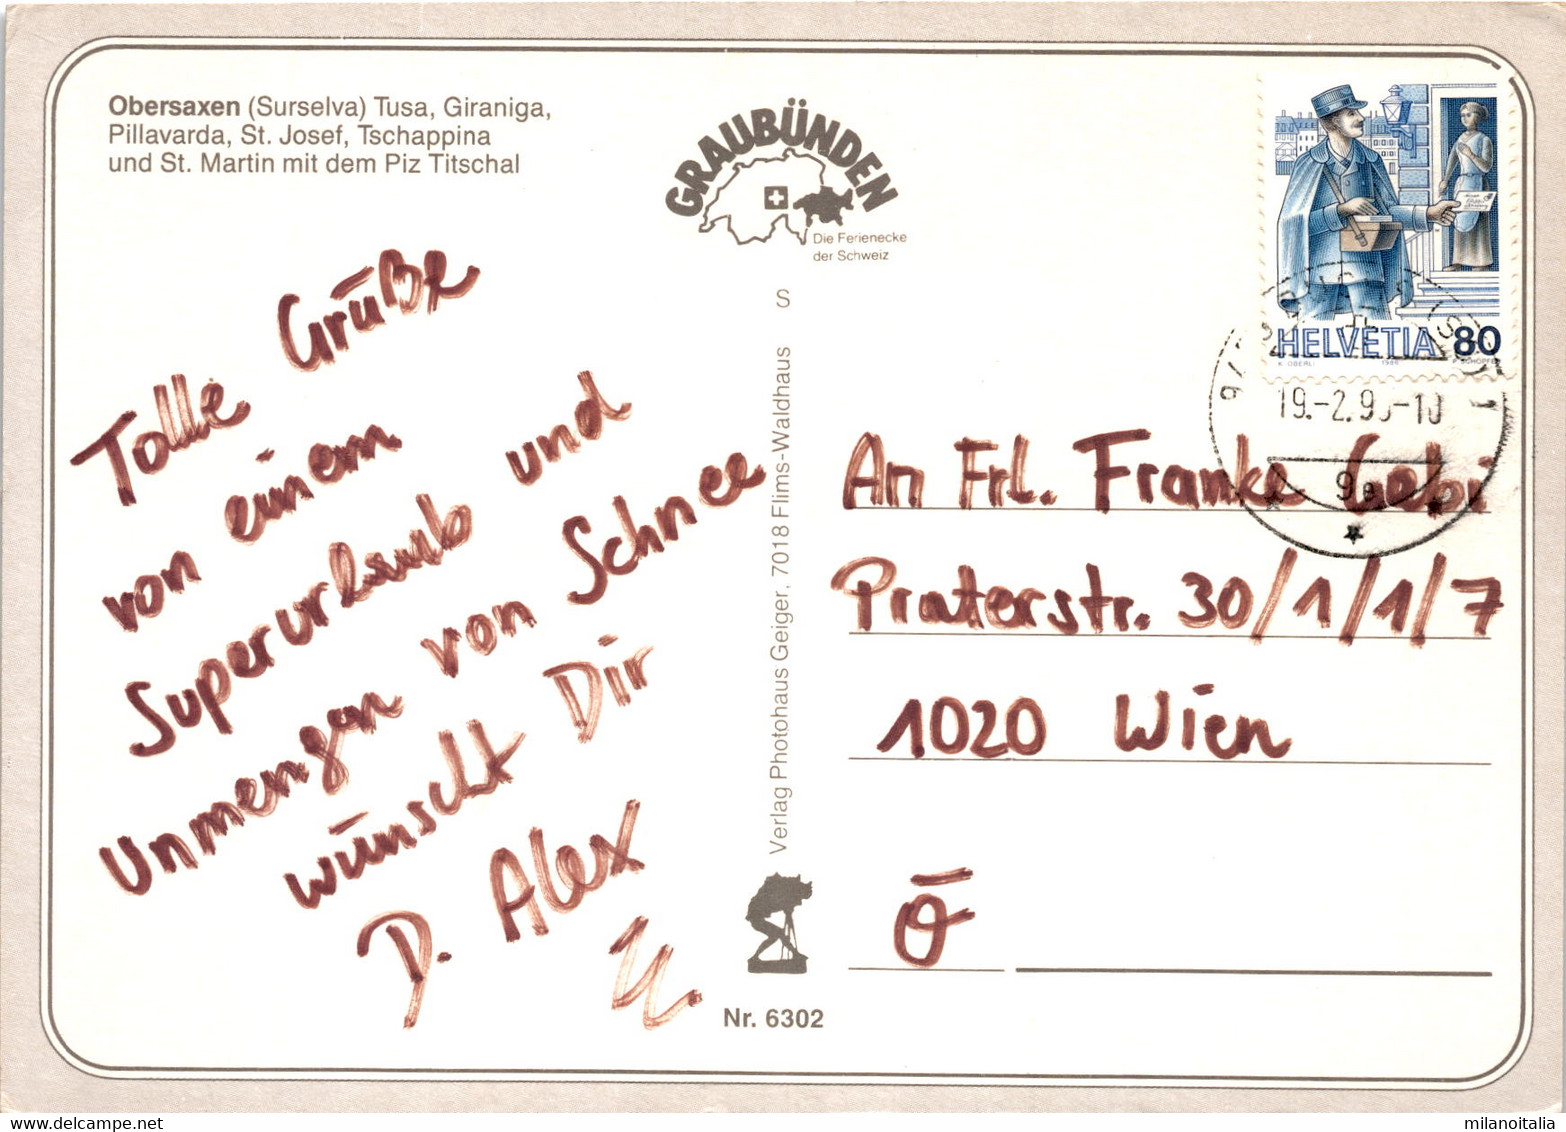 Obersaxen (Surselva) Tusa, Giraniga,
Pillavarda, St. Josef, Tschappina
und St. Martin mit dem Piz Titschal
GRAUBÜNDEN
Die Ferienecke
der Schweiz
HELVETIA 80
K. OBERLI 1986
19.-2.9
9e
Tolle Grüße
von einem
Superurlaub und
Unmengen von Schnee
wünscht Dir
D. Alex
S
Verlag Photohaus Geiger, 7018 Flims-Waldhaus
Nr. 6302
An Frl. Franke Gebi
Praterstr. 30/1/1/7
1020 Wien
Ö
milanoitalia